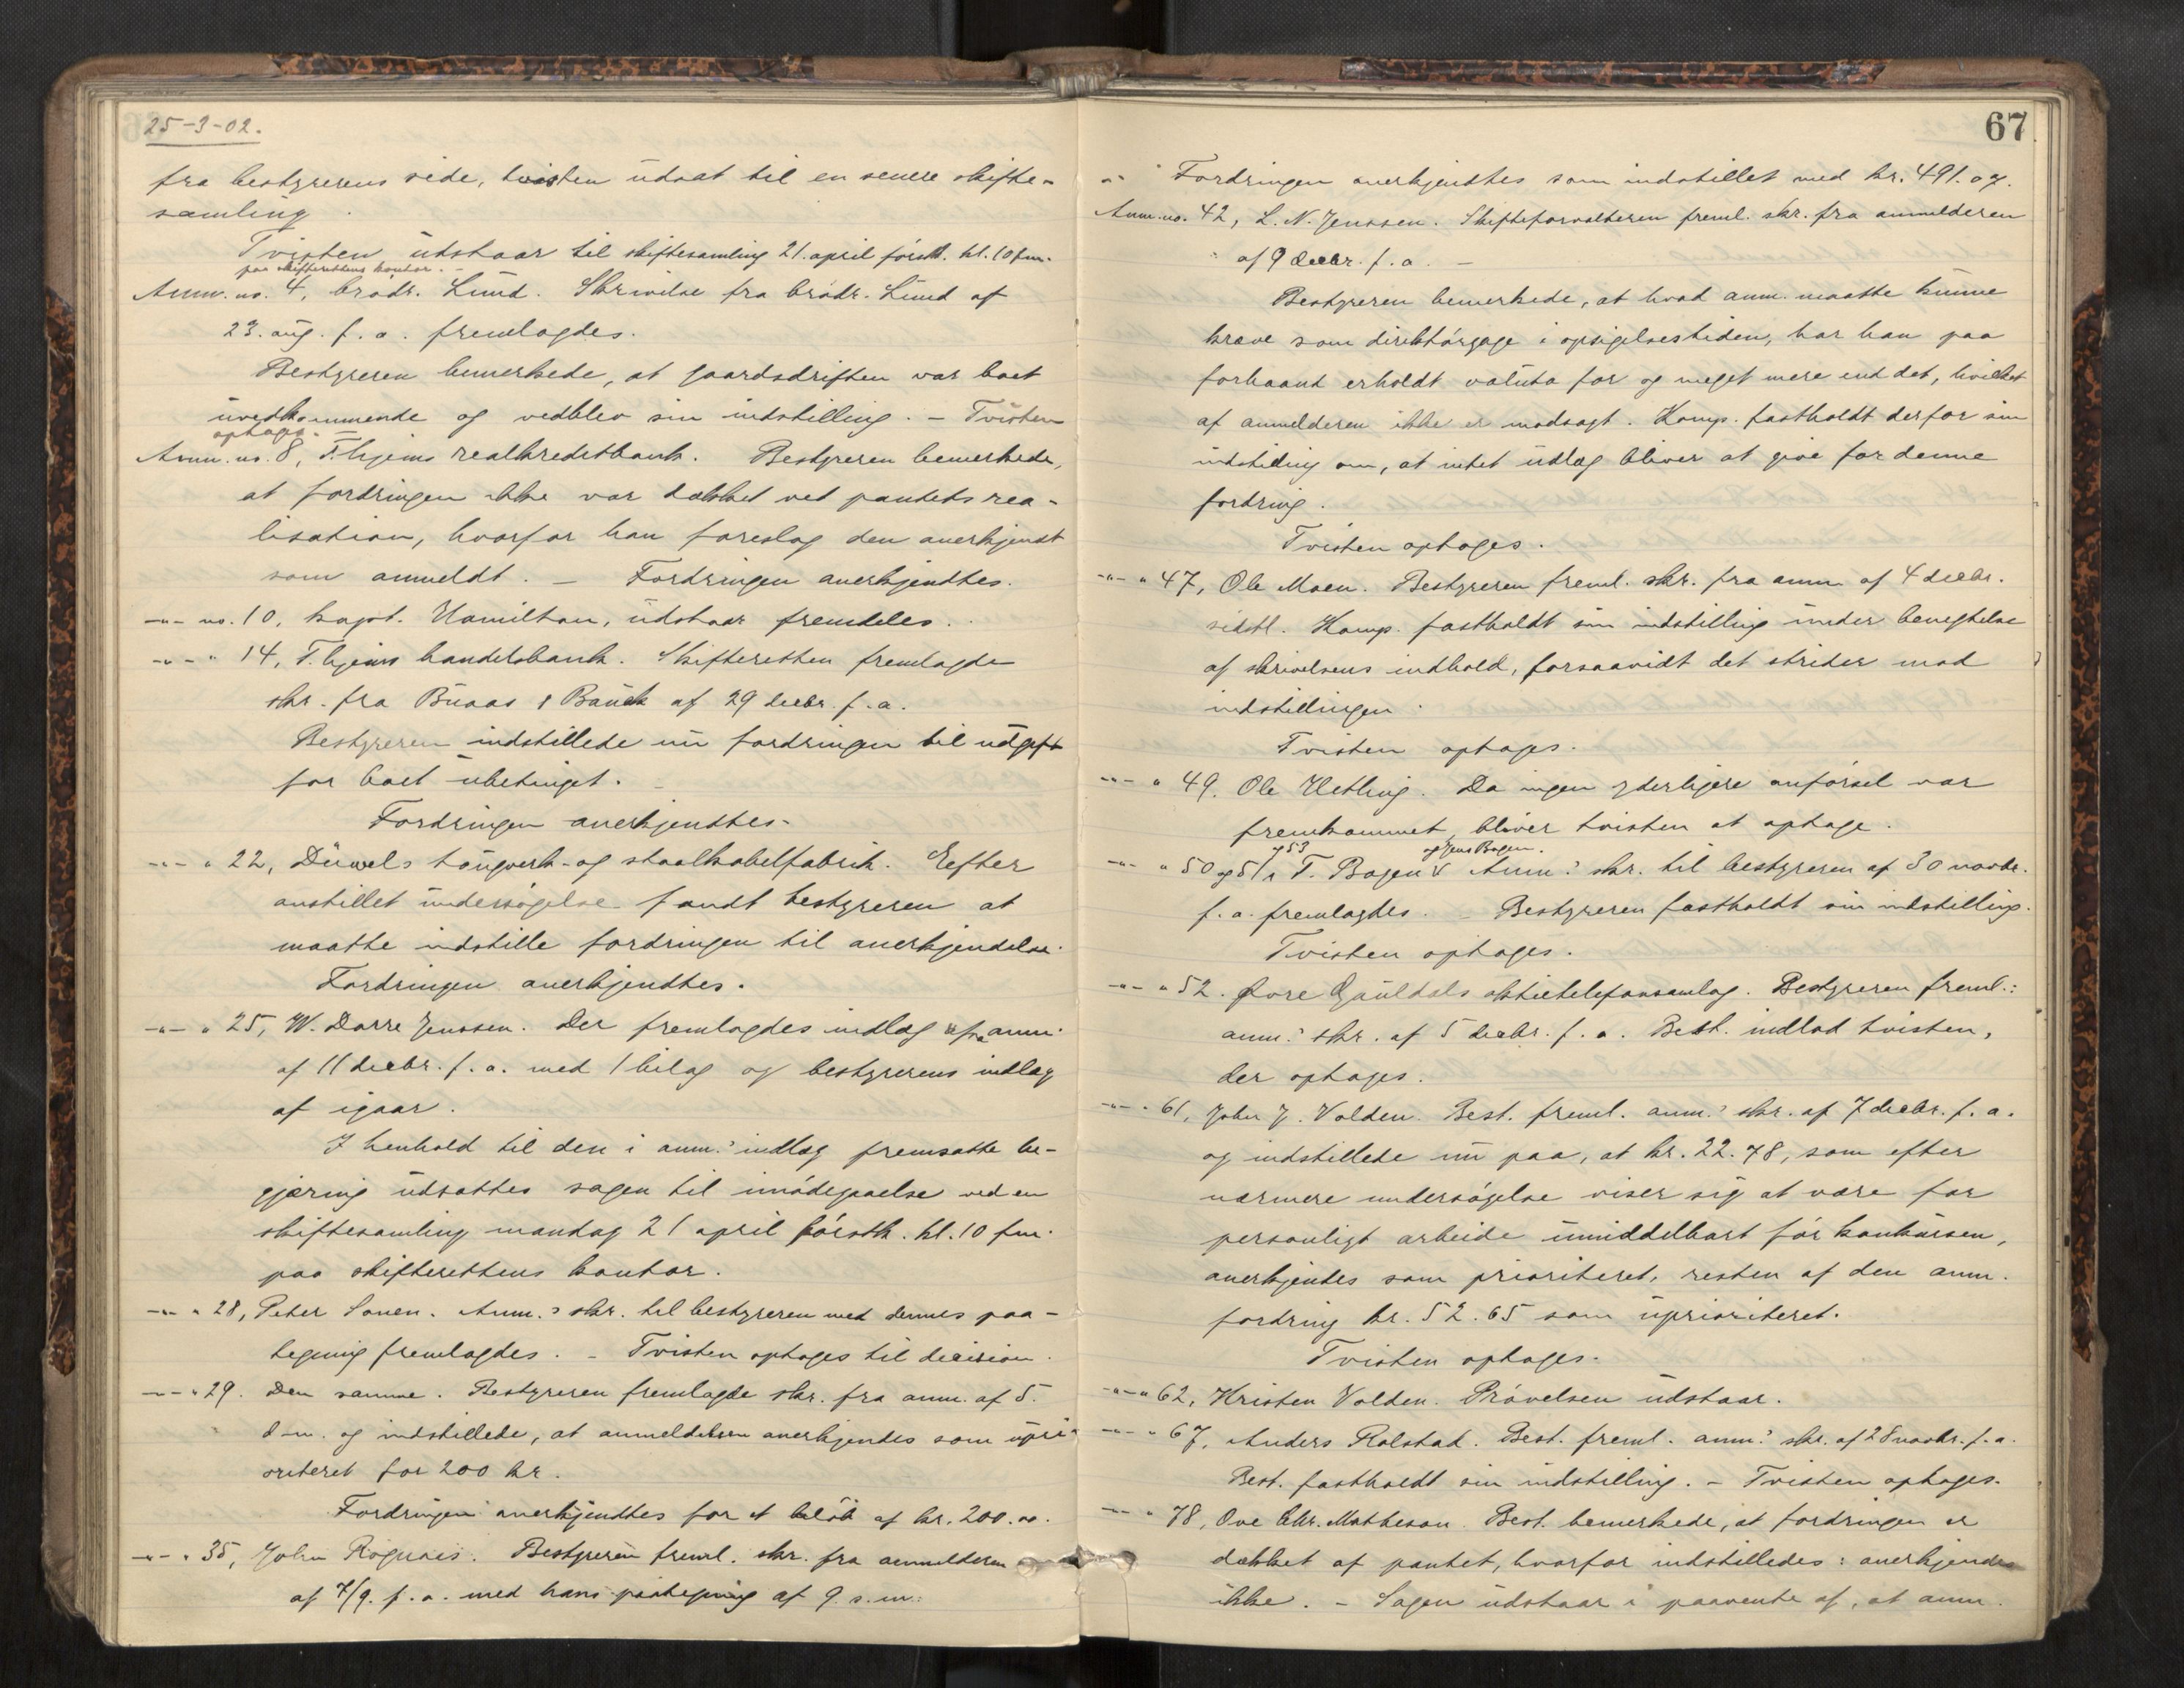 25-3-02.
fra bestyrerens side, tvisten udsat til en senere skifte-
samling.
Tvisten udstaar til skiftesamling 21. april førstk. kl. 10 fm.
paa skifterettens kontor. -
Anm. no. 4, brødr. Lund. Skrivelse fra brødr. Lund af
23. aug. f. a. fremlagdes.
Bestyreren bemerkede, at gaardsdriften var boet
uvedkommende og vedblev sin indstilling. - Tvisten
optages. -
Anm. no. 8, T.hjems realkreditbank. Bestyreren bemerkede,
at fordringen ikke var dækket ved pantets rea-
lisation, hvorfor han foreslog den anerkjendt
som anmeldt. - Fordringen anerkjendtes.
-"- no. 10, kapt. Hamilton, udstaar fremdeles.
-"- " 14, T.hjems handelsbank. Skifteretten fremlagde
skr. fra Buaas & Bauck af 29 decbr. f. a.
Bestyreren indstillede nu fordringen til udgift
for boet ubetinget. -
Fordringen anerkjendtes.
-"- " 22, Düwels taugverk- og staalkabelfabrik. Efter
anstillet undersøgelse fandt bestyreren at
maatte indstille fordringen til anerkjendelse.
Fordringen anerkjendtes.
-"- " 25, W. Darre Jenssen. Der fremlagdes indlæg fra anm.
af 11 decbr. f. a. med 1 bilag og bestyrerens indlæg
af igaar.
I henhold til den i anm.s indlæg fremsatte be-
gjæring udsattes sagen til imødegaaelse ved en
skiftesamling mandag 21 april førstk. kl. 10 fm.
paa skifterettens kontor.
-"- " 28, Peter Sonen. Anm.s skr. til bestyreren med dennes paa-
tegning fremlagdes. - Tvisten optages til decision.
-"- " 29. Den samme. Bestyreren fremlagde skr. fra anm. af 5.
d. m. og indstillede, at anmeldelsen anerkjendes som upri-
oriteret for 200 kr.
Fordringen anerkjendtes for et beløb af kr. 200.00.
-"- " 35, John Rognæs. Bestyreren freml. skr. fra anmelderen
af 7/9. f. a. med hans paategning af 9. s. m.
67
Fordringen anerkjendtes som indstillet med kr. 491.07.
Anm. no. 42, L. N. Jenssen. Skifteforvalteren freml. skr. fra anmelderen
af 9 decbr. f. a. -
Bestyreren bemerkede, at hvad anm. maatte kunne
kræve som direktørgage i opsigelsestiden, har han paa
forhaand erholdt valuta for og meget mere end det, hvilket
af anmelderen ikke er modsagt. Komp. fastholdt derfor sin
indstilling om, at intet udlæg bliver at give for denne
fordring.
Tvisten optages.
-"- " 47, Ole Moen. Bestyreren freml. skr. fra anm af 4 decbr.
sidstl. Komp. fastholdt sin indstilling under benegtelse
af skrivelsens indhold, forsaavidt det strider mod
indstillingen.
Tvisten optages.
-"- " 49. Ole Kletling. Da ingen yderligere anførsel var
fremkommet, bliver tvisten at optage.
og 53 og Jens Bogen.
-"- " 50 og 51, T. Bogen Anm.s skr. til bestyreren af 30 novbr.
f. a. fremlagdes. - Bestyreren fastholdt sin indstilling.
Tvisten optages.
-"- " 52. Øvre Gauldals aktietelefonsamlag. Bestyreren freml.:
anm.s skr. af 5 decbr. f. a. Best. indlod tvisten,
der optages.
-"- " 61, John J. Volden. Best. freml. anm.s skr. af 7 decbr. f. a.
og indstillede nu paa, at kr. 22.78, som efter
nærmere undersøgelse viser sig at være for
personligt arbeide umiddelbart før konkursen,
anerkjendes som prioriteret, resten af den anm.
fordring kr. 52.65 som uprioriteret.
Tvisten optages.
-"- " 62, Kristen Volden. Prøvelsen udstaar.
-"- " 67, Anders Rolstad. Best. freml. anm.s skr. af 28 novbr. f. a.
Best. fastholdt sin indstilling. - Tvisten optages.
-"- " 78, Ove Chr. Matheson. Best. bemerkede, at fordringen er
dækket af pantet, hvorfor indstilledes: anerkjendes
ikke. - Sagen udstaar i paavente af, at anm.